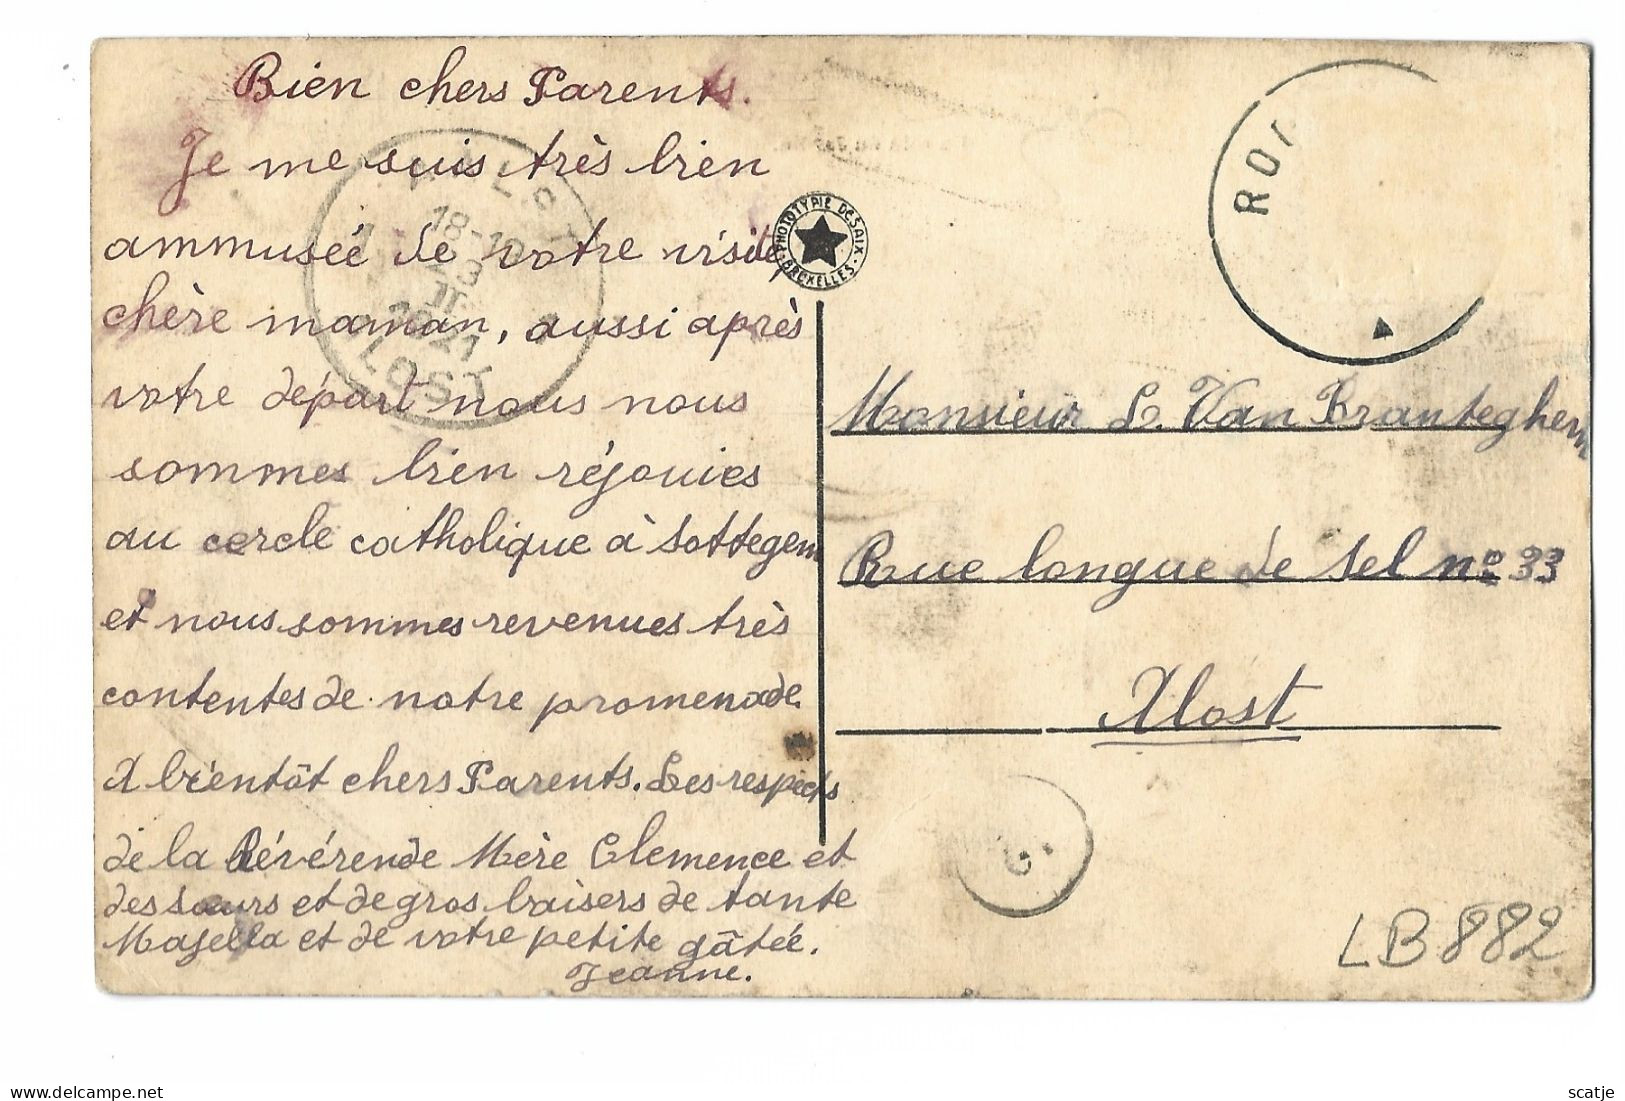 Bien chers Parents.
Je me suis très bien
ammusée de votre visite,
chère maman, aussi après
votre départ nous nous
sommes bien réjouies
au cercle catholique à Sottegem
et nous sommes revenues très
contentes de notre promenade.
A bientôt chers Parents. Les respects
de la Révérende Mère Clemence et
des sœurs et de gros baisers de tante
Majella et de votre petite gâtée.
Jeanne.
18-19
1921
LOST
PHOTOTYPIE DESAIX
BRUXELLES
Monsieur L. Van Branteghem
Rue longue de Sel nº 33
Alost
LB882
scatje